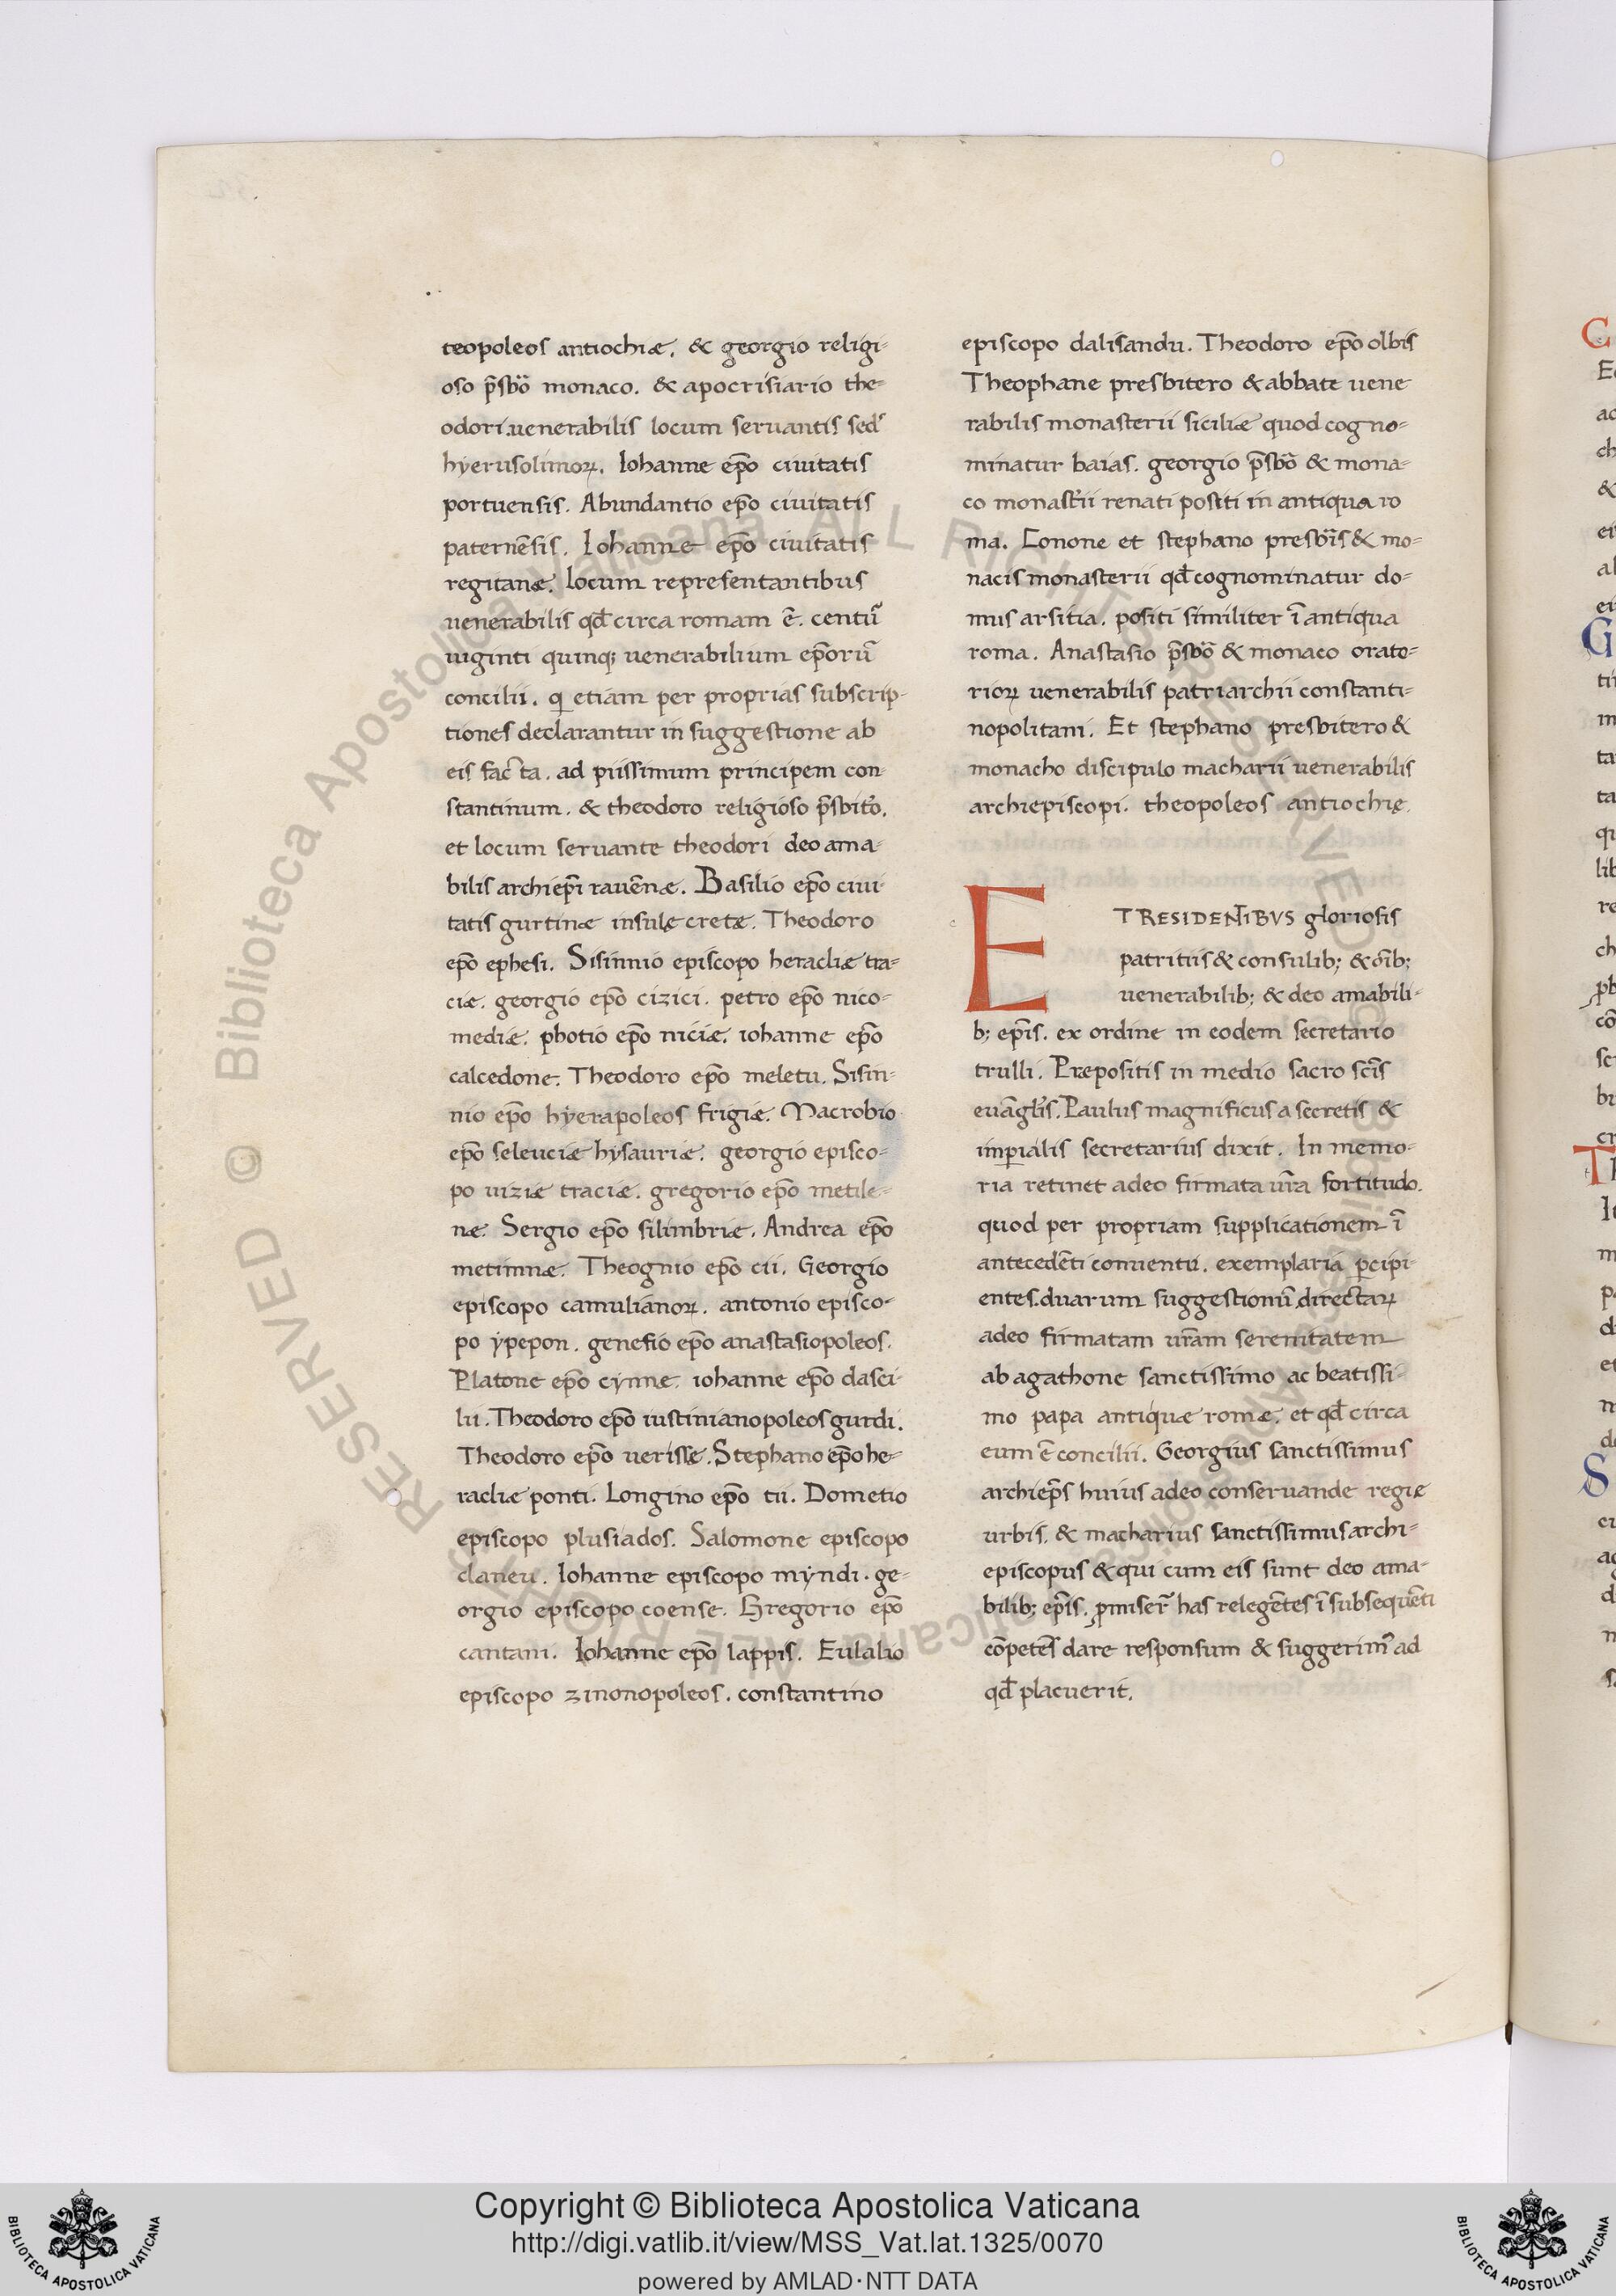 teopoleos antiochiæ. & georgio religi-
oso p̄sbō monaco. & apocrisiario the-
odori. uenerabilis locum seruantis sed͛
hyerusolimoꝝ. Iohanne ep̄o ciuitatis
portuensis. Abundantio ep̄o ciuitatis
paternēsis. Iohanne ep̄o ciuitatis
regitanæ. locum representantibus
uenerabilis qđ circa romam ē. centū
uiginti quinq; uenerabilium ep̄orū
concilii. qi etiam per proprias subscrip-
tiones declarantur in suggestione ab
eis facta. ad piissimum principem con-
stantinum. & theodoro religioso p̄sbit̄o.
et locum seruante theodori deo ama-
bilis archiep̄i rauēnæ. Basilio ep̄o ciui-
tatis gurtinæ insulę cretæ. Theodoro
ep̄o ephesi. Sisinnio episcopo heracliæ tra-
ciæ. georgio ep̄o cizici. petro ep̄o nico-
mediæ. photio ep̄o niciæ. iohanne ep̄o
calcedone. Theodoro ep̄o meletu. Sisin-
nio ep̄o hyerapoleos frigiæ. Macrobio
ep̄o seleuciæ hysauriæ. georgio episco-
po uiziæ traciæ. gregorio ep̄o metile-
næ. Sergio ep̄o silimbriæ. Andrea ep̄o
metimnæ. Theognio ep̄o cii. Georgio
episcopo camulianoꝝ. antonio episco-
po ẏpepon. genesio ep̄o anastasiopoleos.
Platone ep̄o cynne. iohanne ep̄o dasci-
lii. Theodoro ep̄o iustinianopoleos gurdi.
Theodoro ep̄o uerissę. Stephano ep̄o he-
racliæ ponti. Longino ep̄o tii. Dometio
episcopo plusiados. Salomone episcopo
claneu. Iohanne episcopo mẏndi. ge-
orgio episcopo coense. Gregorio ep̄o
cantani. Iohanne ep̄o lappis. Eulalio
episcopo zinonopoleos. constantino
episcopo dalisandu. Theodoro ep̄o olbis
Theophane presbitero & abbate uene
rabilis monasterii siciliæ quod cogno-
minatur baias. georgio p̄sbō & mona-
co monast̄ii renati positi in antiqua ro
ma. Conone et stephano presb̄is & mo-
nacis monasterii qđ cognominatur do-
mus arsitia. positi similiter ī antiqua
roma. Anastasio p̄sbō & monaco orato-
rioꝝ uenerabilis patriarchii constanti-
nopolitani. Et stephano presbitero &
monacho discipulo macharii uenerabilis
archiepiscopi. theopoleos antiochię.
E TRESIDENTIBVS gloriosis
patritiis & consulib; & oīb;
uenerabilib; & deo amabili-
b; ep̄is. ex ordine in eodem secretario
trulli. Præpositis in medio sacro sc̄is
euāgłis. Paulus magnificus a secretis &
imꝑialis secretarius dixit. In memo-
ria retinet adeo firmata ur̄a fortitudo.
quod per propriam supplicationem ī
antecedēti conuentu. exemplaria ꝑcipi-
entes. duarum suggestionū directaꝝ
adeo firmatam ur̄am serenitatem
ab agathone sanctissimo ac beatissi-
mo papa antiquæ romæ. et qđ circa
eum ē concilii. Georgius sanctissimus
archiep̄s huius adeo conseruande regiæ
urbis. & macharius sanctissimus archi-
episcopus & qui cum eis sunt deo ama-
bilib; ep̄is. ꝓmiser̄ has relegētes ī subsequēti
cōpetēs dare responsum & suggerim᷒ ad
qđ placuerit.
Copyright © Biblioteca Apostolica Vaticana
http://digi.vatlib.it/view/MSS_Vat.lat.1325/0070
powered by AMLAD·NTT DATA
BIBLIOTECA APOSTOLICA VATICANA
BIBLIOTECA APOSTOLICA VATICANA